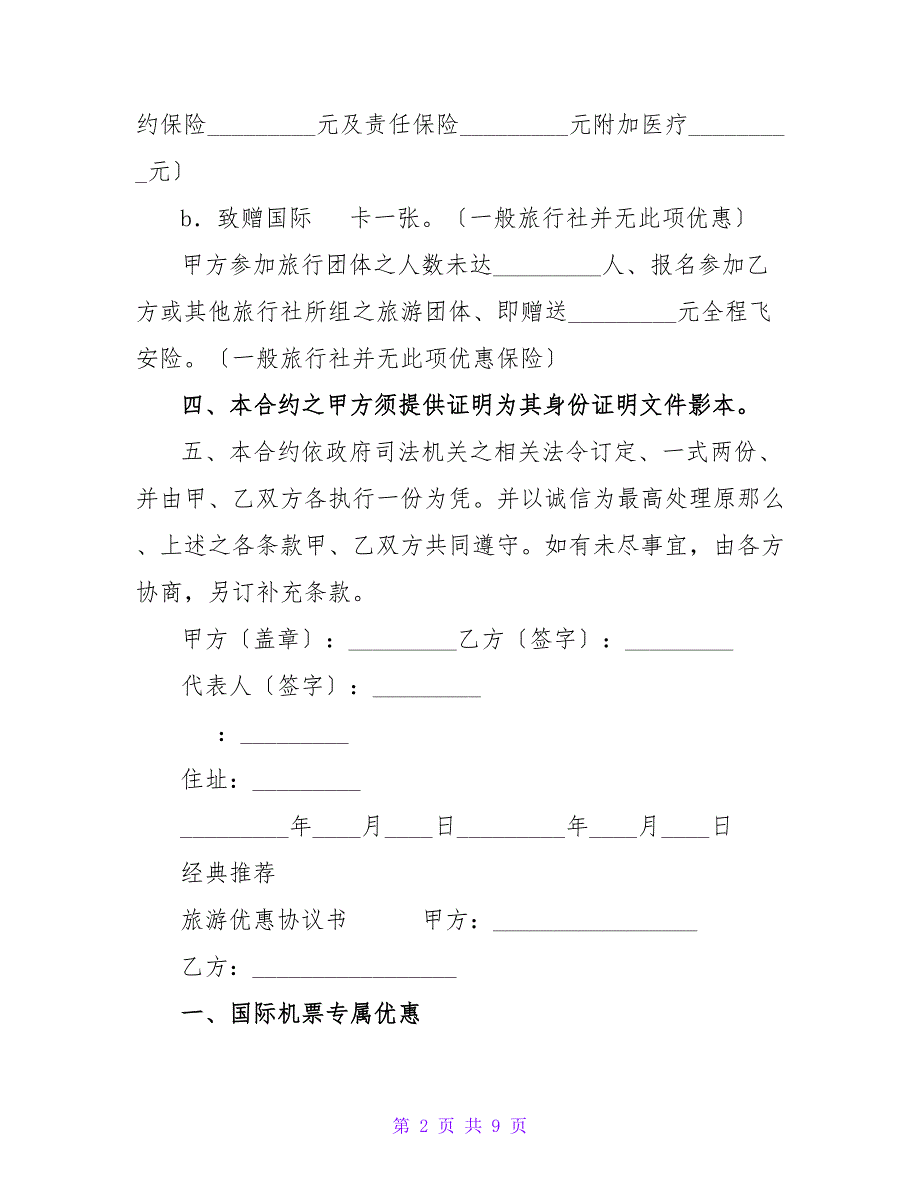 约保险_________元及责任保险_________元附加医疗________
_元〕
b．致赠国际   卡一张。〔一般旅行社并无此项优惠〕
甲方参加旅行团体之人数未达_________人、报名参加乙
方或其他旅行社所组之旅游团体、即赠送_________元全程飞
安险。〔一般旅行社并无此项优惠保险〕
四、本合约之甲方须提供证明为其身份证明文件影本。
五、本合约依政府司法机关之相关法令订定、一式两份、
并由甲、乙双方各执行一份为凭。并以诚信为最高处理原那么
、上述之各条款甲、乙双方共同遵守。如有未尽事宜，由各方
协商，另订补充条款。
甲方〔盖章〕：_________乙方〔签字〕：_________
代表人〔签字〕：_________
：_________
住址：_________
_________年____月____日_________年____月____日
经典推荐
旅游优惠协议书      甲方：_________________
乙方：_________________
一、国际机票专属优惠
第 2 页 共 9 页